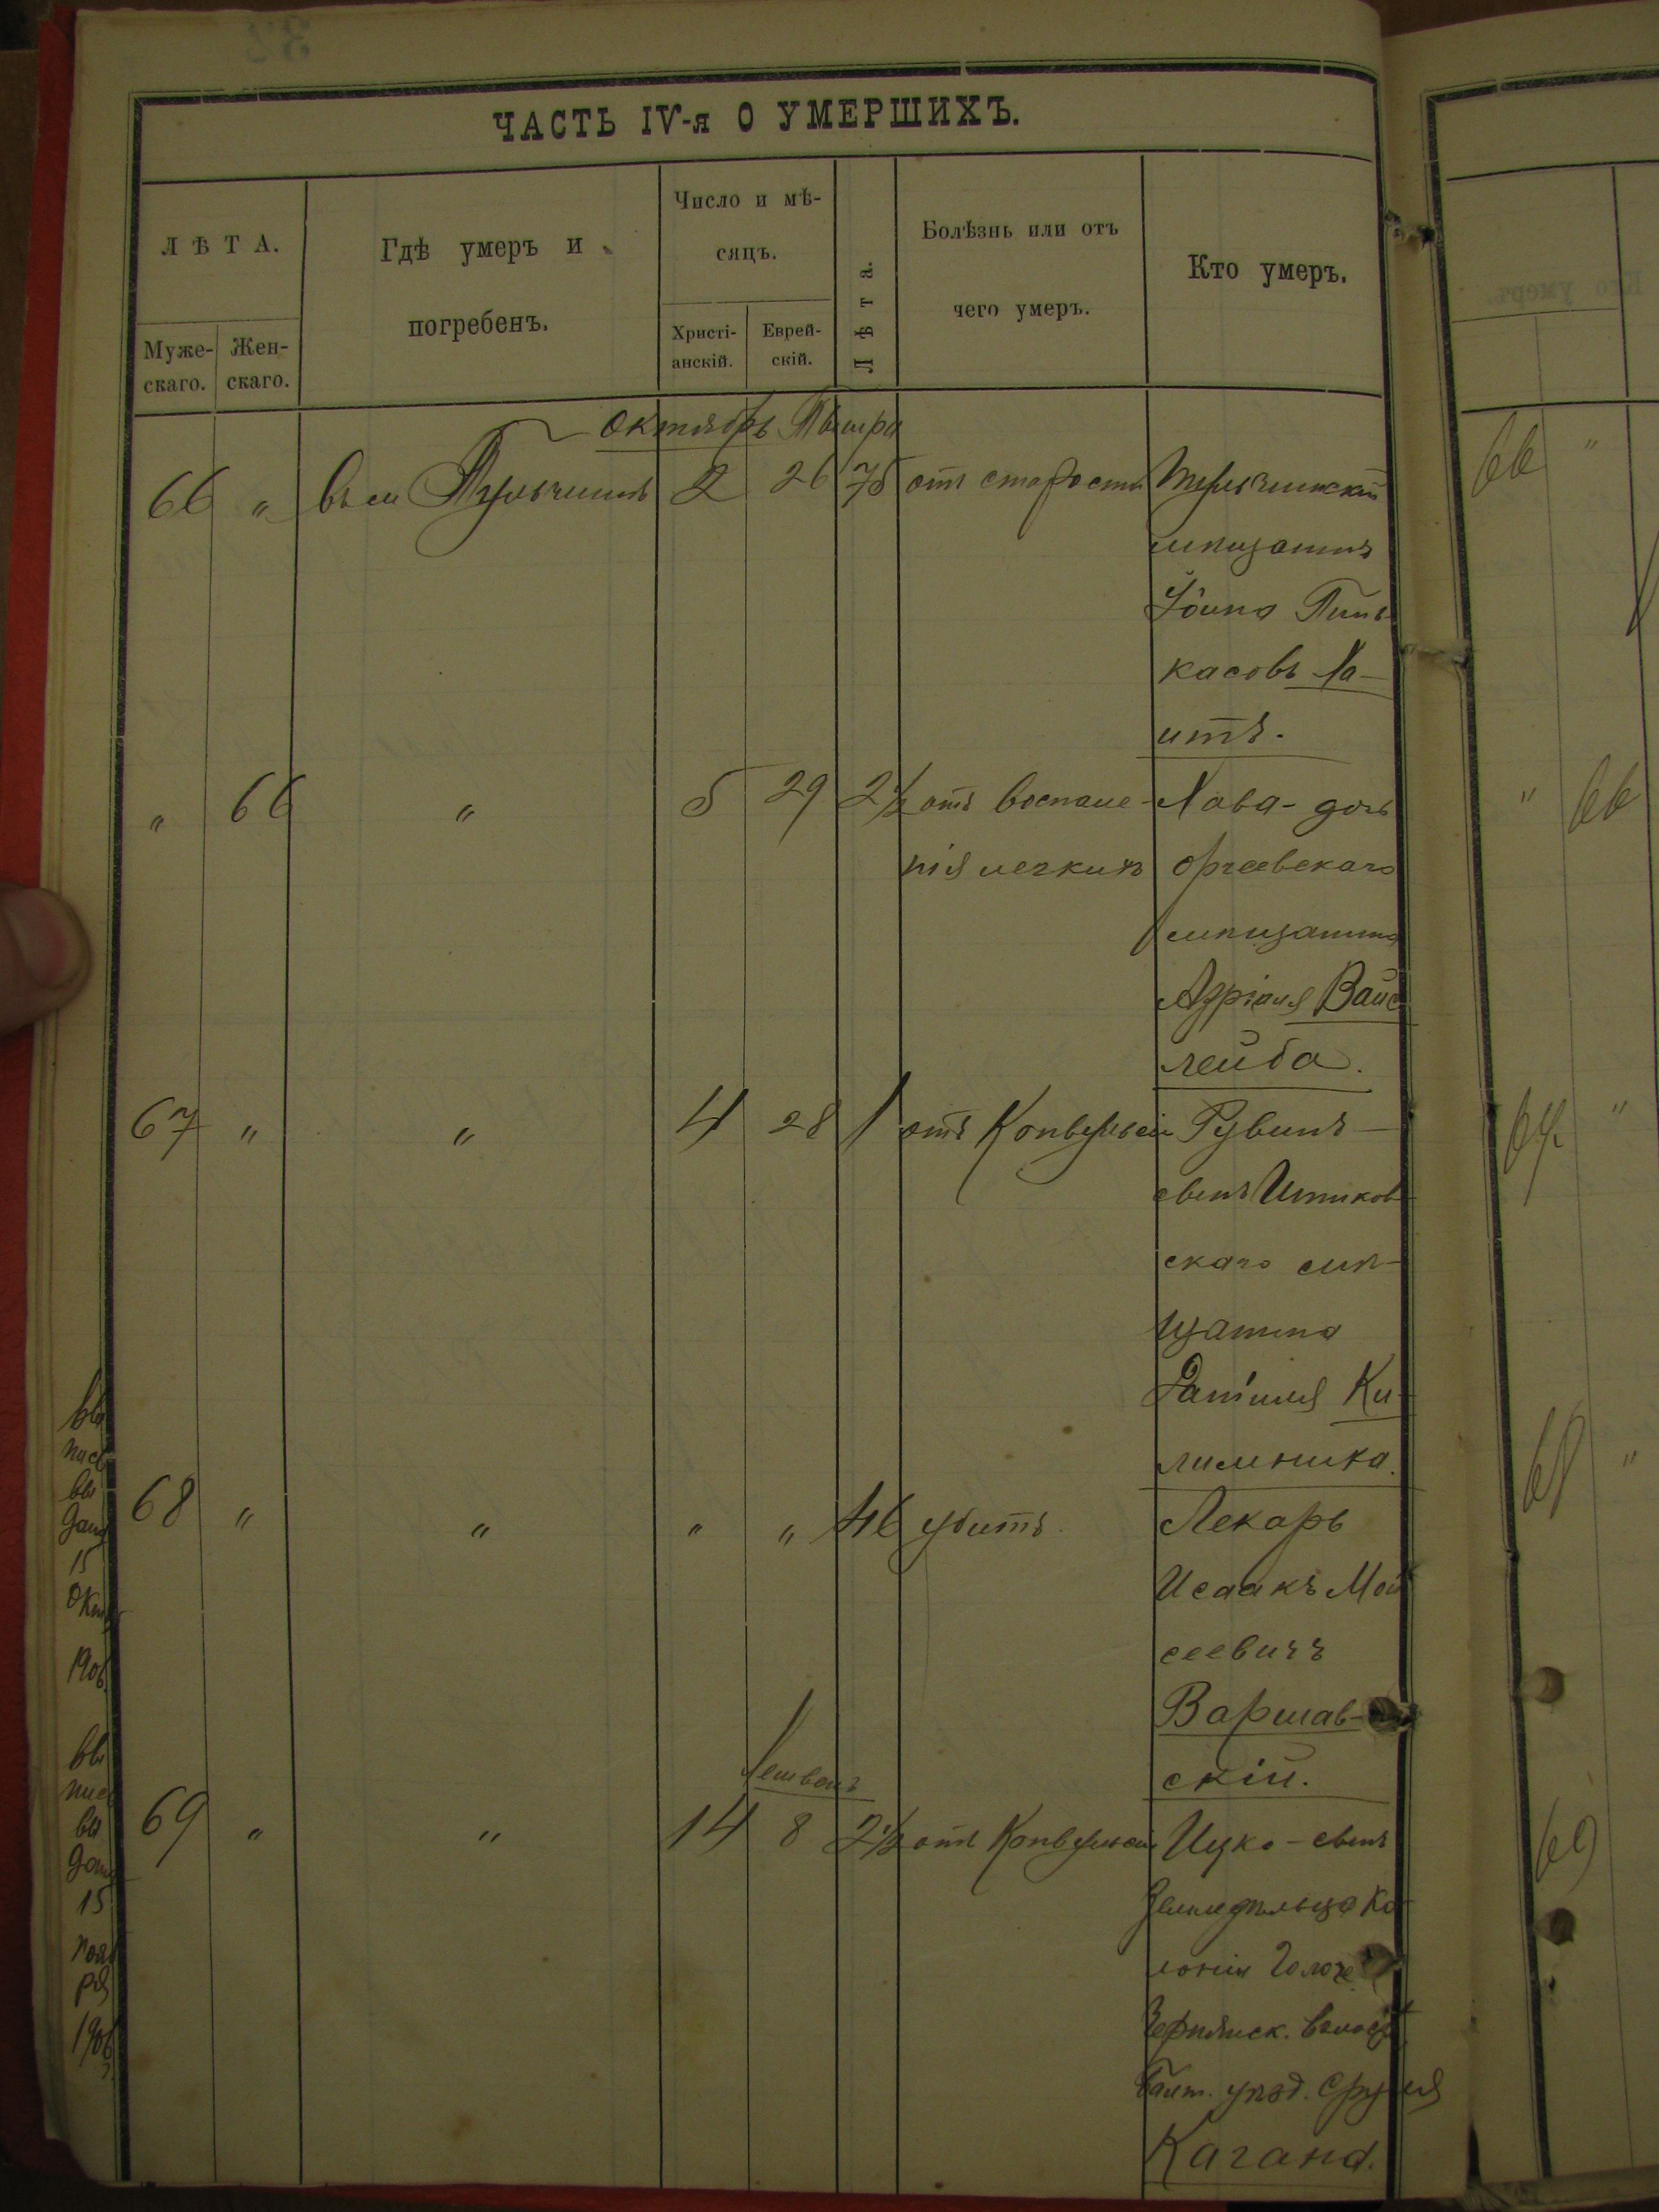 ЧАСТЬ IV-я О УМЕРШИХЪ.
ЛѢТА.
Муже-
скаго.
Жен-
скаго.
Гдѣ умеръ и
погребенъ.
Число и мѣ-
сяцъ.
Христі-
анскій.
Еврей-
скій.
Лѣта.
Болѣзнь или отъ
чего умеръ.
Кто умеръ.
Октябрь Тишра
66 " въ м Тульчинѣ 2 26 75 отъ старости Тульчинскій
мѣщанинъ
Іойна Пинь-
касовъ Ха-
итъ.
" 66 " 5 29 2½ отъ воспале- Хава - дочь
нія легкихъ Оргеевскаго
мѣщанина
Азріеля Вайс
лейба.
67 " " 4 28 1 отъ Конвульсіи Рувинъ -
сынъ
скаго мѣ-
щанина
Даніила Ки-
лимника.
68 " " " " 46 убитъ. Лекарь
Исаакъ Мои
сеевичъ
Варшав-
скій.
Хешванъ
69 " " 14 8 2½ отъ Конвульсіи Ицко - сынъ
Земледѣльца Ко
лоніи
волост
Балт. уѣзд. Сруля
Кагана.
вы
пись
вы
дана
15
Окт
1906
вы
пись
вы
дана
15
Нояб
ря
1906
66 "
" 66
67 "
68 "
69